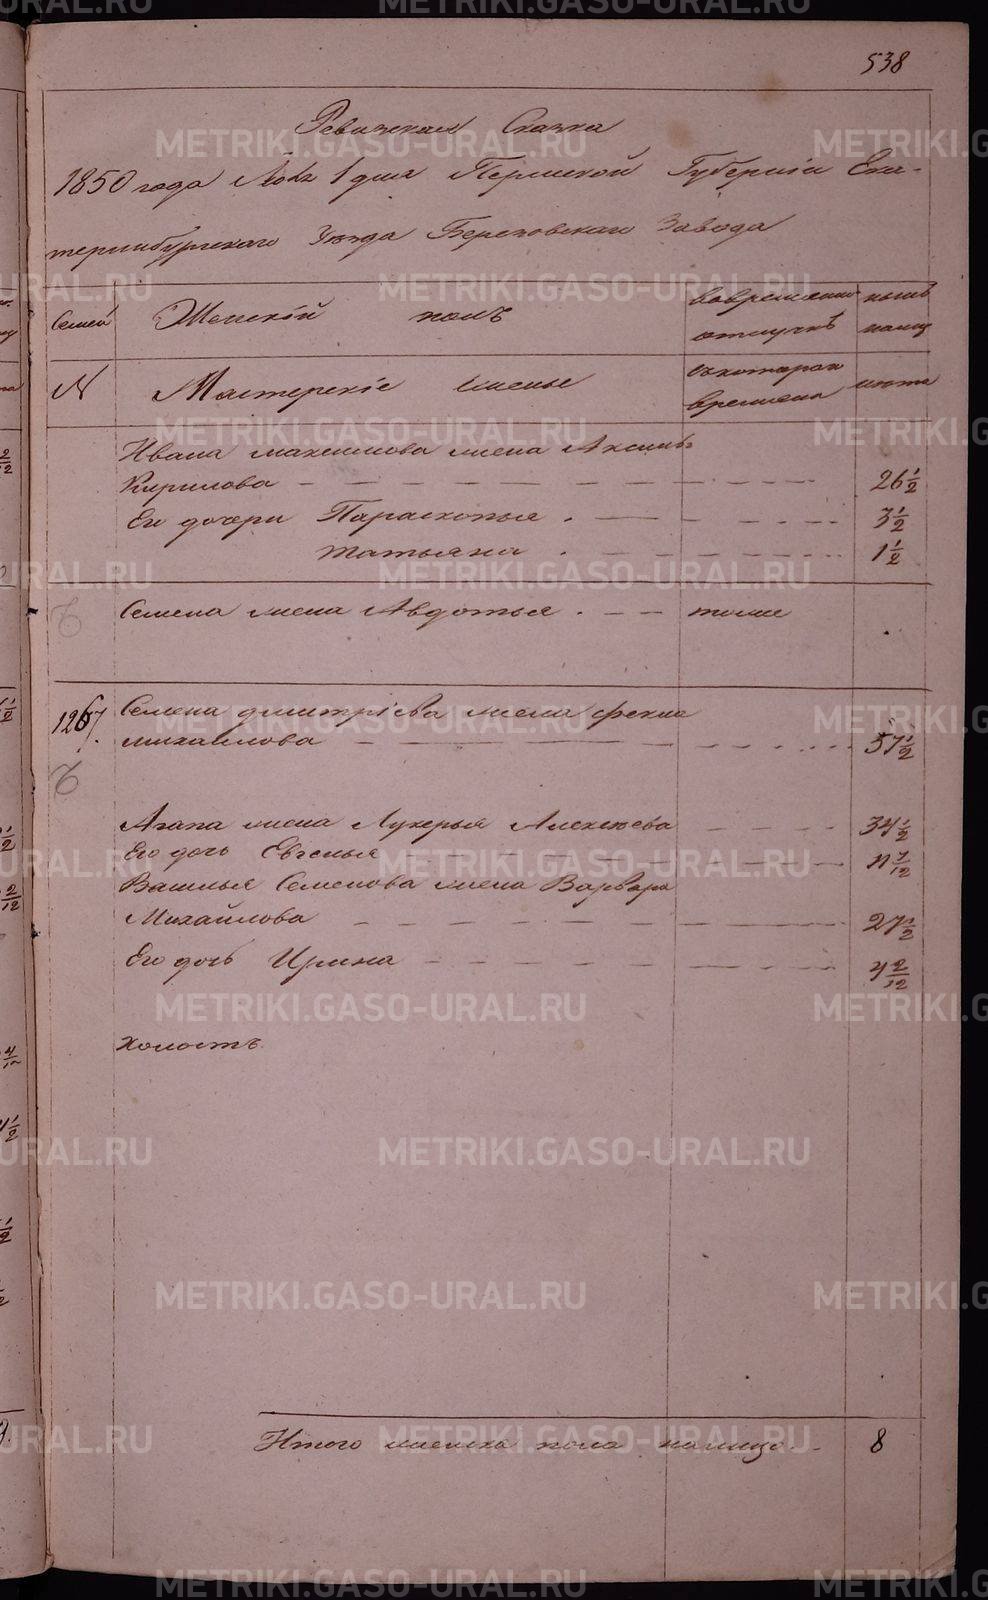 538
Ревизская Сказка
1850 года 1 дня Пермской Губернiи Ека-
теринбургскаго Уезда Березовскаго Завода
Семей Женскiй полъ во временной отлучкѣ нынѣ на лицо
№ Мастерскiе жены съ котораго времени лѣта
Ивана Максимова жена Аксинья
Кирилова 26 1/2
Его дочери Парасковья 3 1/2
Татьяна 1 1/2
Семена жена Авдотья тоже
1267. Семена Дмитрiева жена Фекла
Михайлова 57 1/2
Агапа жена Лукерья Алексѣева 34 1/2
Его дочь Евгенья 11 7/12
Василья Семенова жена Варвара
Михайлова 27 1/2
Его дочь Ирина 4 2/12
Холостъ.
Итого женска пола налицо 8
METRIKI.GASO-URAL.RU